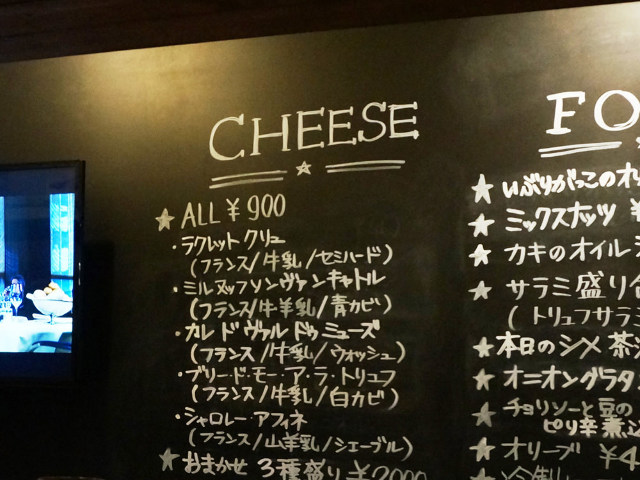 CHEESE
★ ALL ¥900
・ラクレット クリュ
(フランス/牛乳/セミハード)
・ミルヌッフソンヴァンキャトル
(フランス/牛羊乳/青カビ)
・カレ ド ヴァル ドゥ ミューズ
(フランス/牛乳/ウォッシュ)
・ブリー・ド・モー・ア・ラ・トリュフ
(フランス/牛乳/白カビ)
・シャロレー・アフィネ
(フランス/山羊乳/シェーブル)
★ おまかせ 3種盛り ¥2000
FO
★ いぶりがっこのオ
★ ミックスナッツ ¥
★ カキのオイル
★ サラミ盛り
(トリュフサラミ
★ 本日の〆 茶
★ オニオングラタ
★ チョリソーと豆の
ピリ辛煮込
★ オリーブ ¥4
★